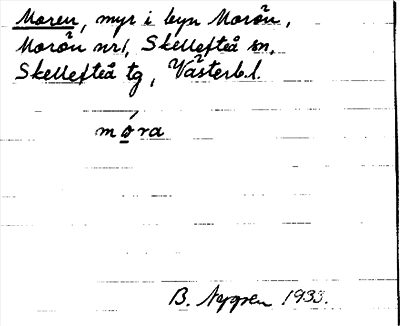 Moren, myr i byn Morön,
Morön nr 1, Skellefteå sn,
Skellefteå tg, Västerb. l.
móra
B. Nygren 1933.